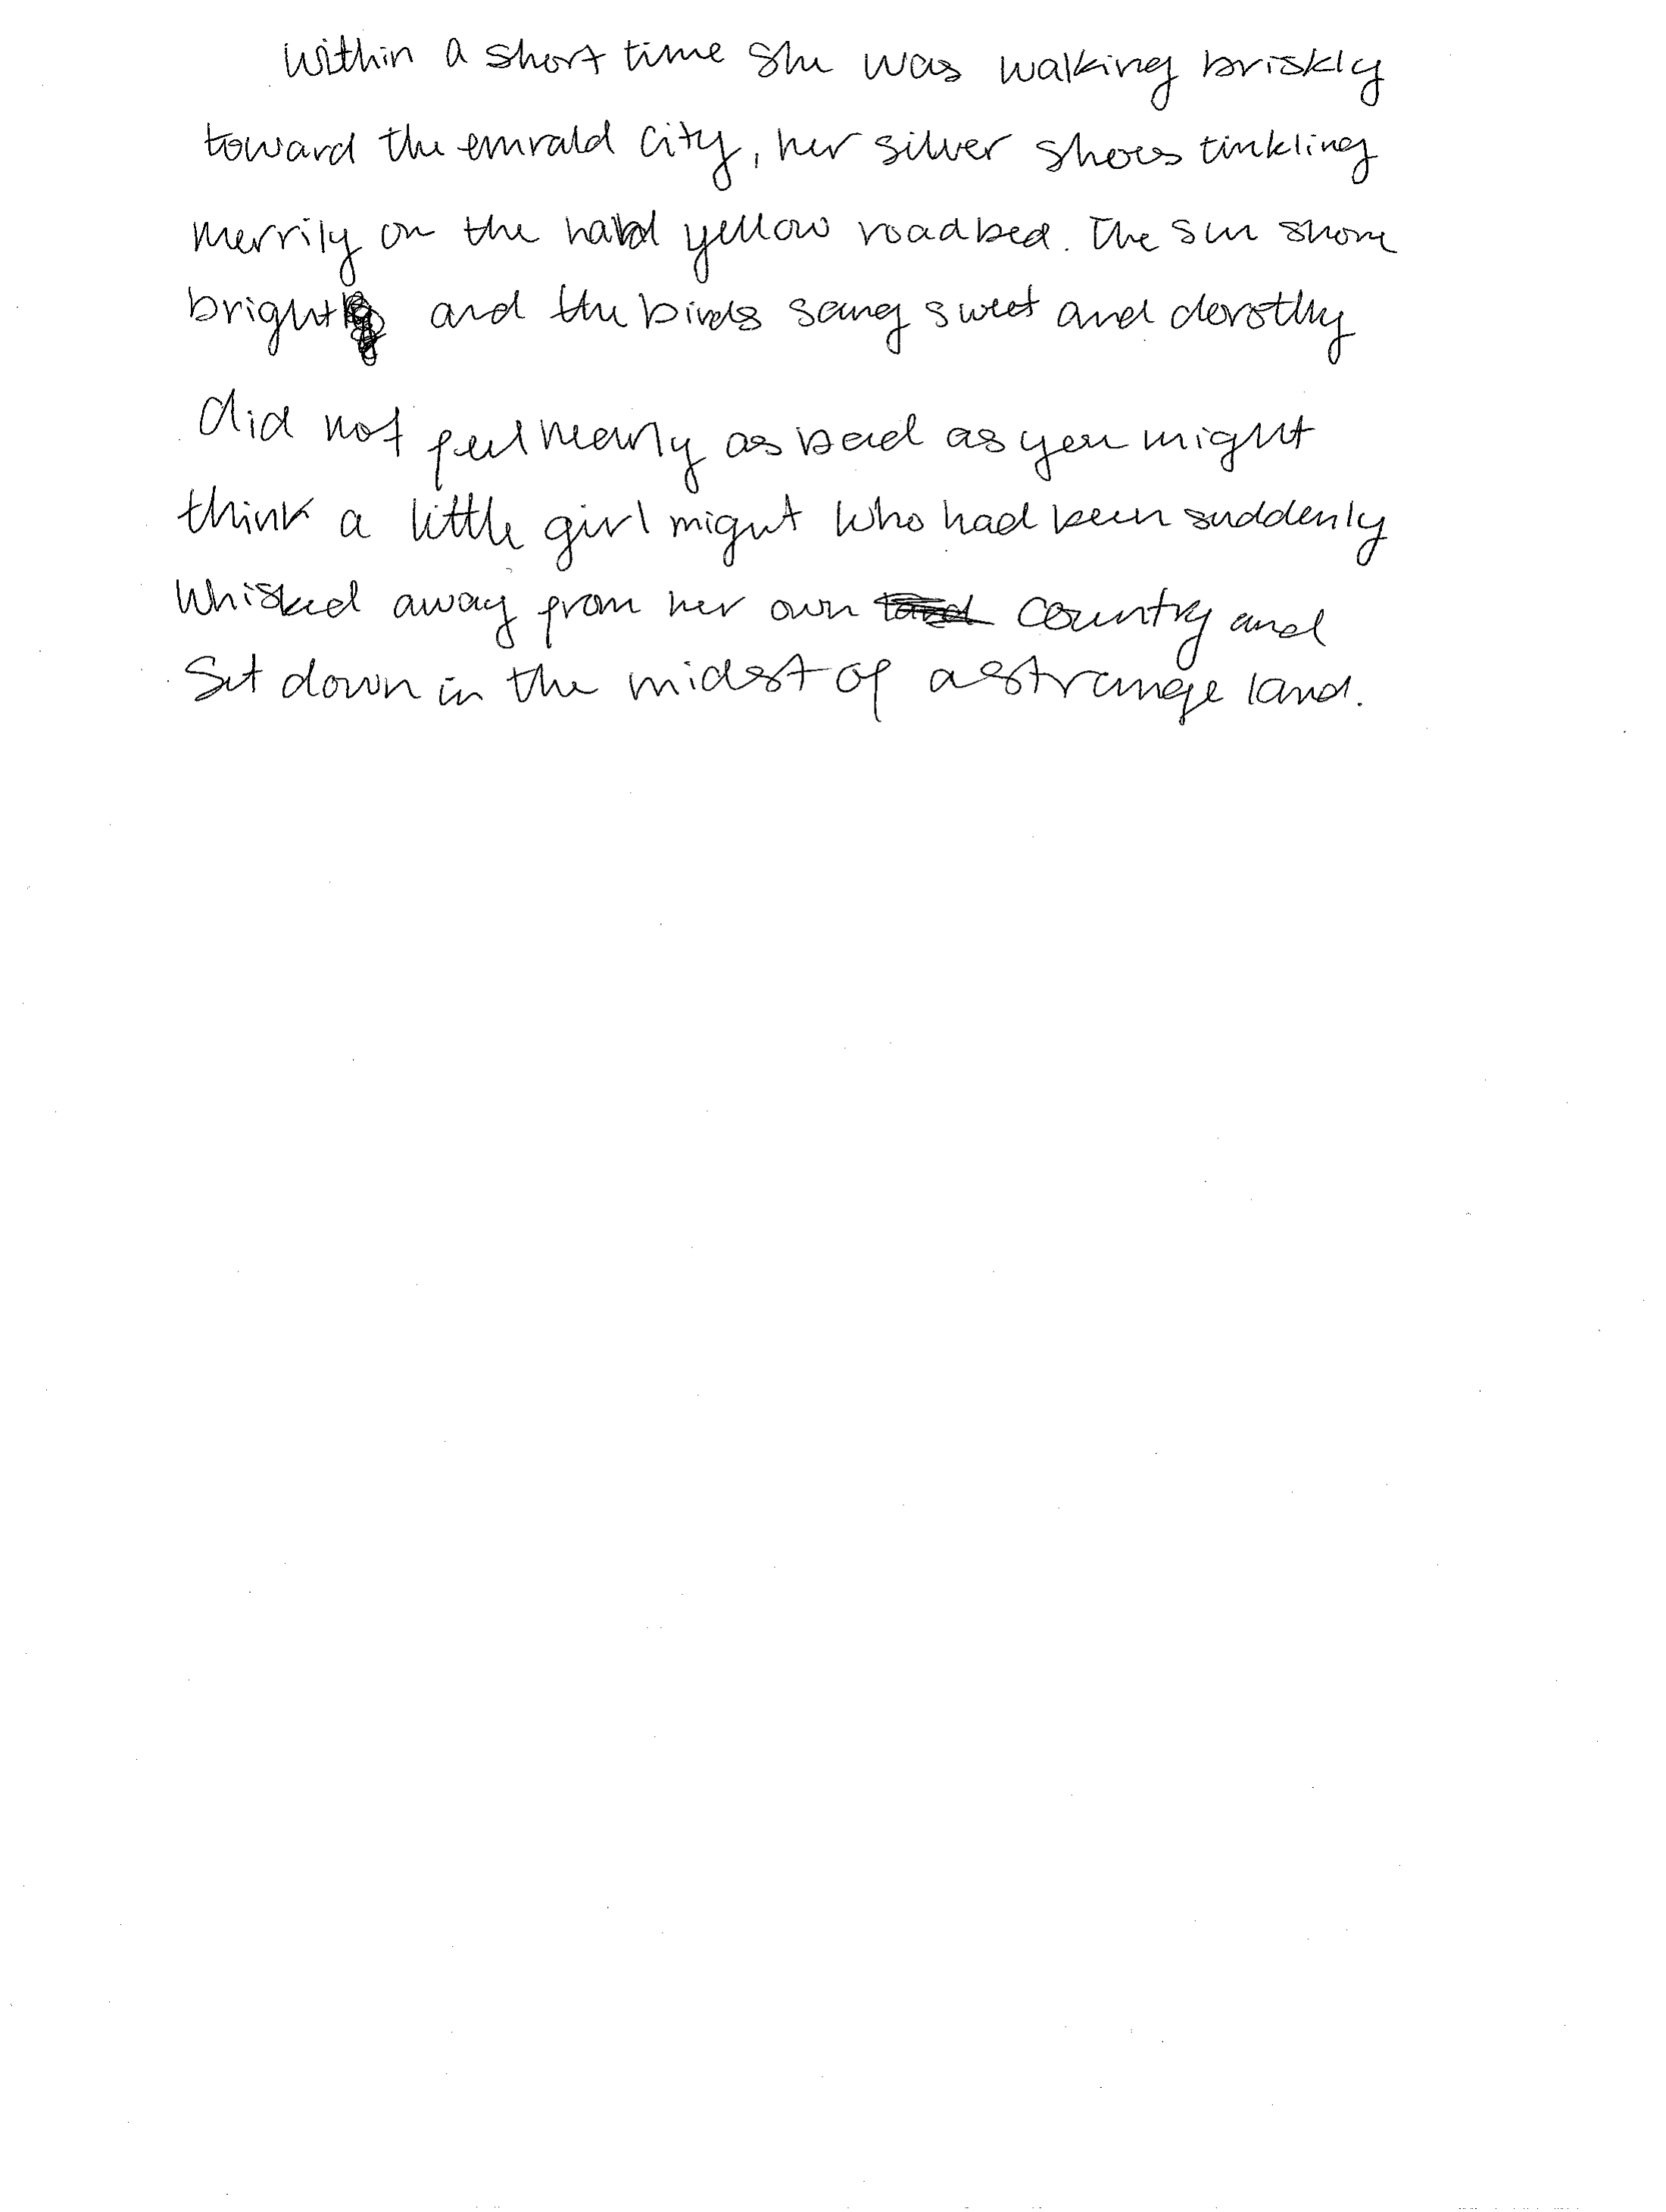 Within a short time she was walking briskly
toward the emrald city, her silver shoes tinkling
merrily on the hard yellow roadbed. The sun shone
bright and the birds sang sweet and dorothy
did not feel nearly as bad as you might
think a little girl might who had been suddenly
whisked away from her own country and
set down in the midst of a strange land.